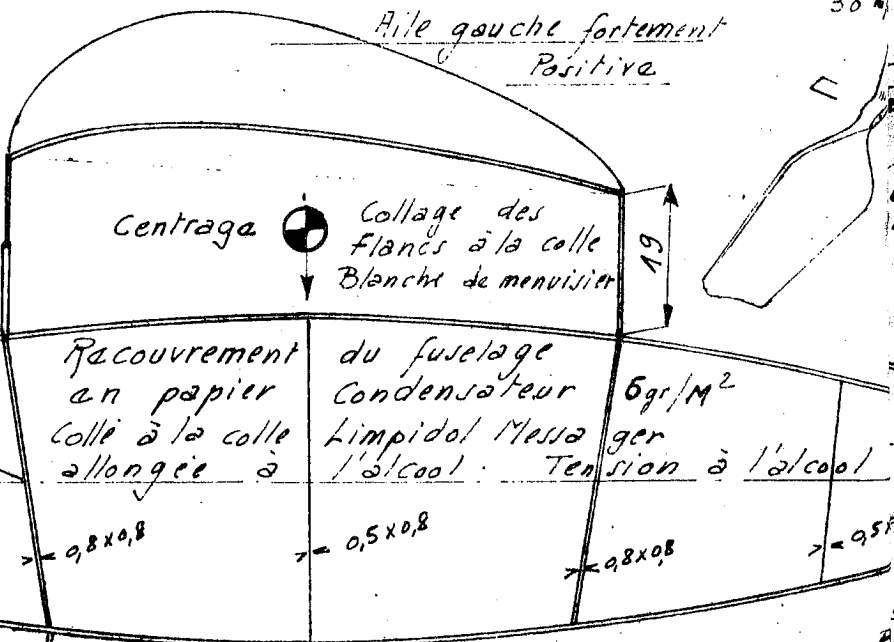 Aile gauche fortement
Positive
30
Centrage
Collage des
Flancs à la colle
Blanche de menuisier
19
Recouvrement du fuselage
en papier Condensateur 6gr/M²
Collé à la colle Limpidol Messager
allongée à l'alcool. Tension à l'alcool
0,8x0,8
0,5x0,8
0,8x0,8